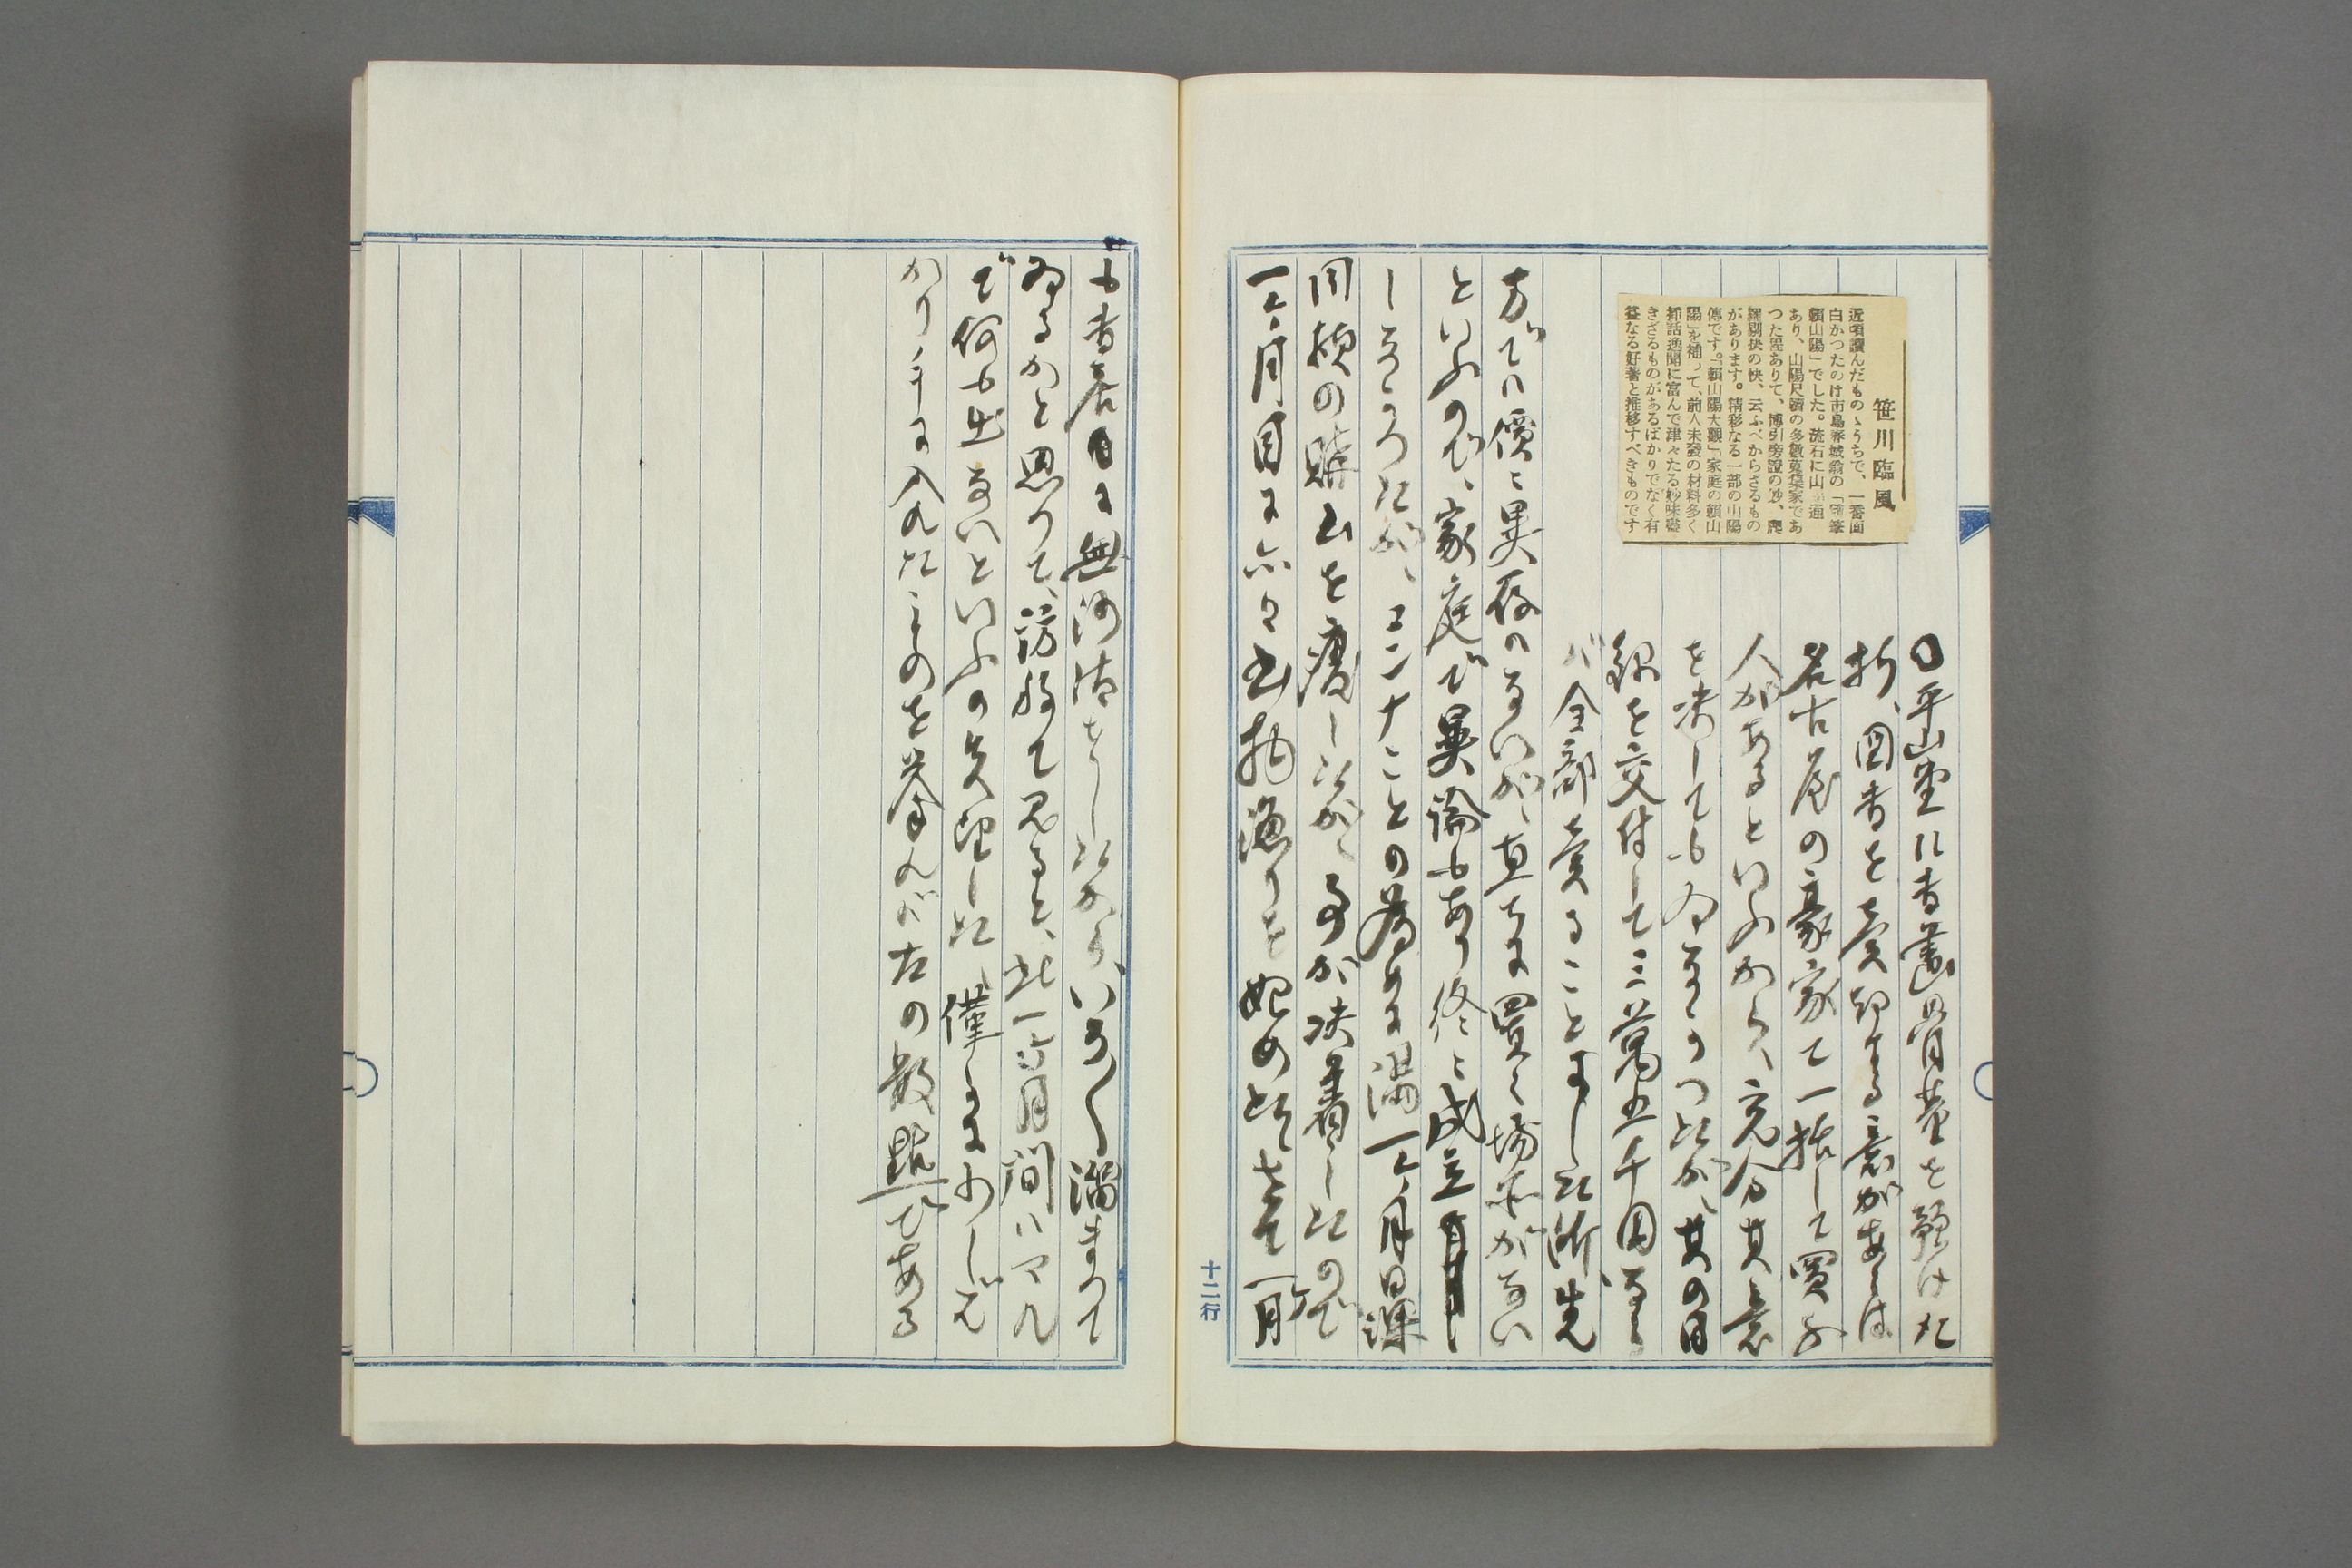 笹川臨風
近頃讀んだものゝうちで、一番面
白かつたのは市島春城翁の「隨筆
頼山陽」でした。流石に山陽通
あり、山陽尺牘の多數蒐集家であ
つた丈ありて、博引旁證の妙、爬
羅剔抉の快、云ふべからざるもの
があります。精彩なる一部の山陽
傳です。「頼山陽大觀」「家庭の頼山
陽」を補つて、前人未發の材料多く
插話逸聞に富んで津々たる妙味盡
きざるものがあるばかりでなく有
益なる好著と推移すべきものです
〇平山堂に書畫骨董を預けた
折、圖書を賣却する意があらば
名古屋の豪家で一括して買ふ
人があるといふから、充分其意
を決してもゐなかつたが、其の目
録を交付して三萬五千圓なら
バ全部賣ることにした所、先
方でハ價に異存のないが、直ちに買く場所がない
といふので、家庭で異論もあり終に成立
しなかつたが、コンナことの為めに満一ヶ月日課
同様の購書を廃したが、事が決着したので
一ヶ月目に亦々書物漁りを始めた、さて一ヶ月
も書店に無沙汰をしたから、いろ〱溜まつて
ゐるかと思つて、訪ねて見ると、此一ヶ月間ハマル
で何も出ないといふの失望した、僅かに少しば
かり手に入れたものを挙んバ左の数點である
十二行